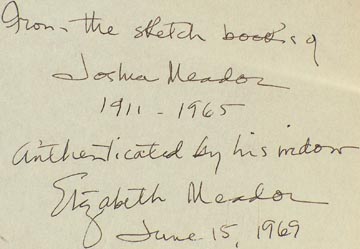 From the sketch book's of
Joshua Meador
1911 - 1965
Authenticated by his widow
Elizabeth Meador
June 15, 1969